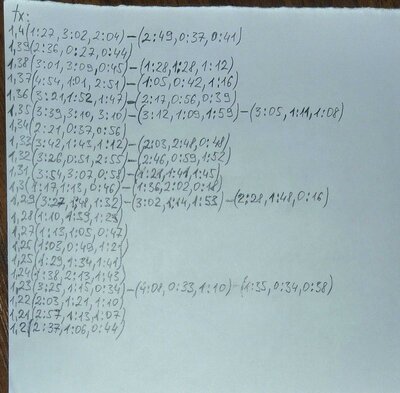 tx:
1,4(1:27, 3:02, 2:04)-(2:49, 0:37, 0:41)
1,39(2:36, 0:27, 0:44)
1,38(3:01, 3:09, 0:45)-(1:28, 1:28, 1:12)
1,37(4:54, 1:01, 2:51)-(1:05, 0:42, 1:16)
1,36(3:21, 1:52, 1:47)-(2:17, 0:56, 0:39)
1,35(3:39, 3:10, 3:10)-(3:12, 1:09, 1:59)-(3:05, 1:11, 1:08)
1,34(2:21, 0:37, 0:56)
1,33(3:42, 1:43, 1:12)-(2:03, 2:48, 0:48)
1,32(3:26, 0:51, 2:55)-(2:46, 0:59, 1:52)
1,31(3:54, 3:07, 0:58)-(1:21, 1:41, 1:45)
1,3(1:17, 1:13, 0:46)-(1:36, 2:02, 0:18)
1,29(3:27, 1:48, 1:32)-(3:02, 1:14, 1:53)-(2:28, 1:48, 0:16)
1,28(1:10, 1:39, 1:29)
1,27(1:13, 1:05, 0:47)
1,26(1:03, 0:49, 1:21)
1,25(1:29, 1:34, 1:41)
1,24(1:38, 2:13, 1:43)
1,23(3:25, 1:15, 0:34)-(4:08, 0:33, 1:10)-(1:35, 0:34, 0:58)
1,22(2:03, 1:21, 1:10)
1,21(2:57, 1:13, 1:07)
1,2(2:37, 1:06, 0:44)